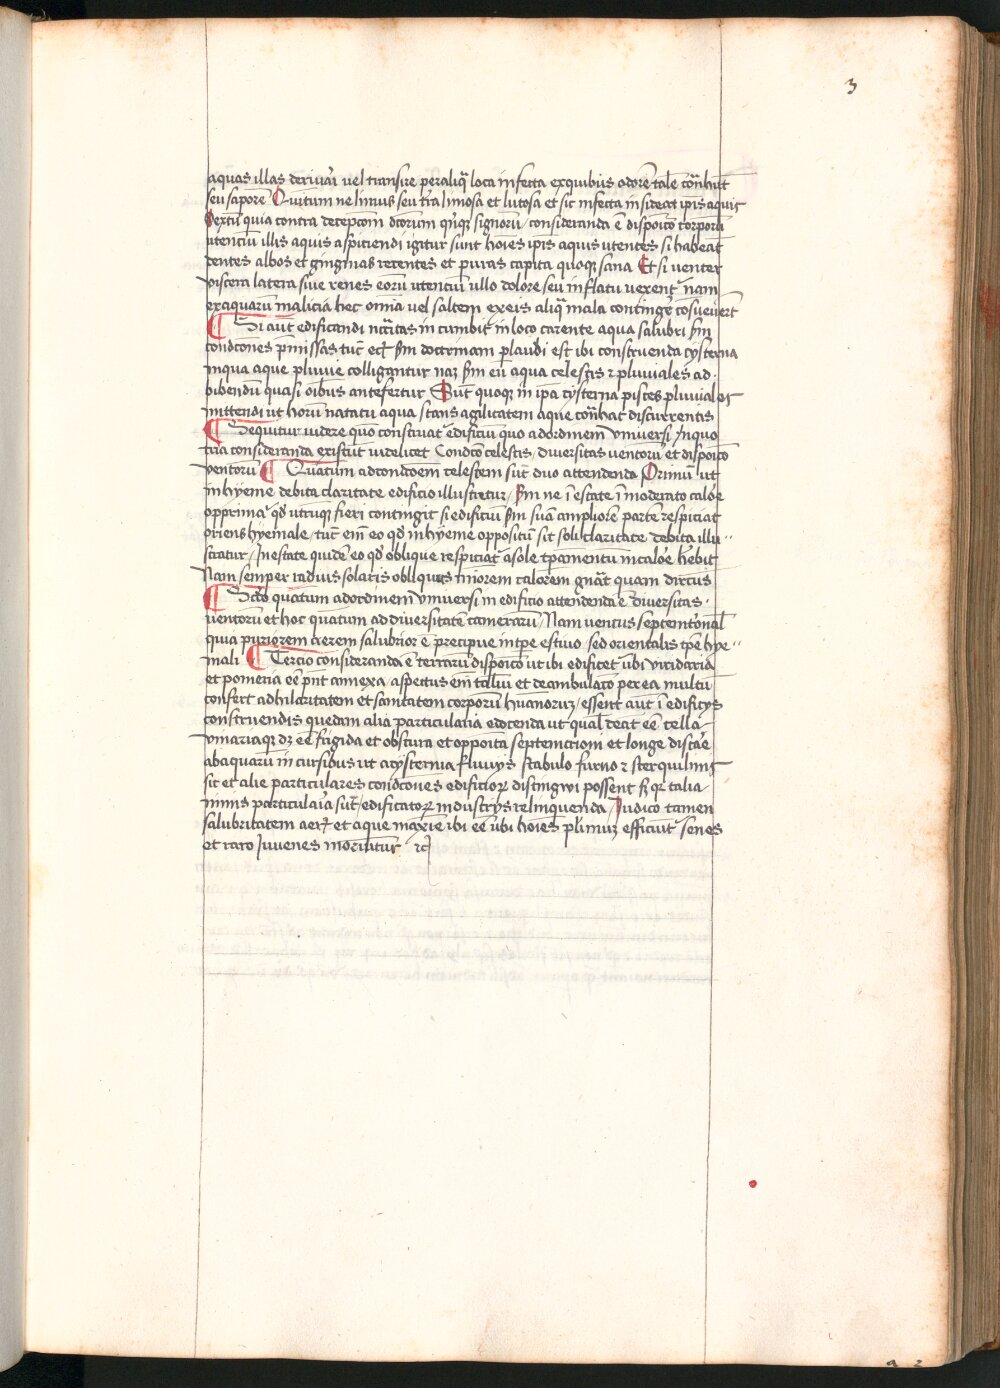 3
aquas illas derivari vel transire per aliqua loca infecta ex quibus odorē talē cōtrahūt
seu saporē Quītum ne limus seu t̄ra limosa et lutosa et sic infecta insideat ip̄is aquis
Sextū quia contra deceptōem dc̄orum qīqꝫ signorū consideranda ē dispoīto corporū
utenciū illis aquis aspiciendi igitur sunt hoīes ip̄is aquis utentes si habeāt
dentes albos et gingiuas recentes et puras capita quoqꝫ sana Et si venter
viscera latera siue renes eorū utentiū ullo dolore seu inflatu vexent᷑ nam
ex aquarū malicia hec omīa vel saltem ex eis aliq̄ mala continger̄ cōsueuer̄t
¶ Si aut̄ edificandi nc̄c̄itas incumbit in loco carente aqua salubri scd̄m
condicōnes p̄missas tūc ecī scd̄m doctrinam p̄laudi est ibi construenda cysterna
in qua aque pluuie colliguntur naꝫ scd̄m eū aqua celestis ⁊ pluuiales ad
bibendū quasi oībus antefertur Sūt quoqꝫ in ip̄a cysterna pisces pluuiales
mittendi ut horū natatu aqua stans agilitatem aque cōtrahat discurrentis
¶ Sequitur videre quō construat᷑ edificiū quo ad ordinem vniuersi In quo
tria consideranda existūt videlicet Condicō celestis / diuersitas ventorū et dispoīto
ventorū ¶ Quātum ad condicōem celestem sūt duo attendenda Primū ut
in hyeme debita claritate edificio illustretur / scd̄m ne ī estate īmoderato calor̄e
opprima᷑ qđ utrumqꝫ fieri contingit si edificiū scd̄m suā ampliorē partē respiciat
oriens hyemale / tūc em̄ eo qđ in hyeme oppositū sit soli claritate debita illu-
stratur / In estate quidē eo qđ oblique respiciat᷑ a sole tp̄amentū in calor̄e hēbit
Nam semper radius solaris obliquus minorem calorem gn̄at quam directus
¶ Scd̄o quātum ad ordinem vniuersi in edificio attendenda ē diuersitas
ventorū et hoc quātum ad diuersitatē camerarū / Nam ventus septemtōnal̄
quia puriorem aerem salubrior ē precipue in tp̄e estiuo sed orientalis tp̄e hye-
mali ¶ Tercio consideranda ē terrarū dispoīto ut ibi edificet᷑ ubi viridaria
et pomeria eē p̄nt annexa / aspectus em̄ taliū et deambulacō per ea multū
confert ad hilaritatem et sanitatem corporū humanorūꝫ / essent aūt ī edificijs
construendis quedam alia particularia edocenda ut qual̄ debeat eē cella
vinariaqꝫ dꝫ eē frigida et obscura et oppoīta septemtrioni et longe distare
ab aquarū incursibus ut a cysternis fluuijs stabulo furno ⁊ sterquilinijs
sic et alie particulares condicōnes edificiorꝫ distingwi possent sꝫ qꝛ talia
nimis particularia sūt / edificatorꝫ industrijs relinquenda / Judico tamen
salubritatem aeris et aque maxīe ibi eē ubi hoīes pl̄rimuꝫ efficiūt᷑ senes
et raro Juuenes moriūtur ⁊c̄